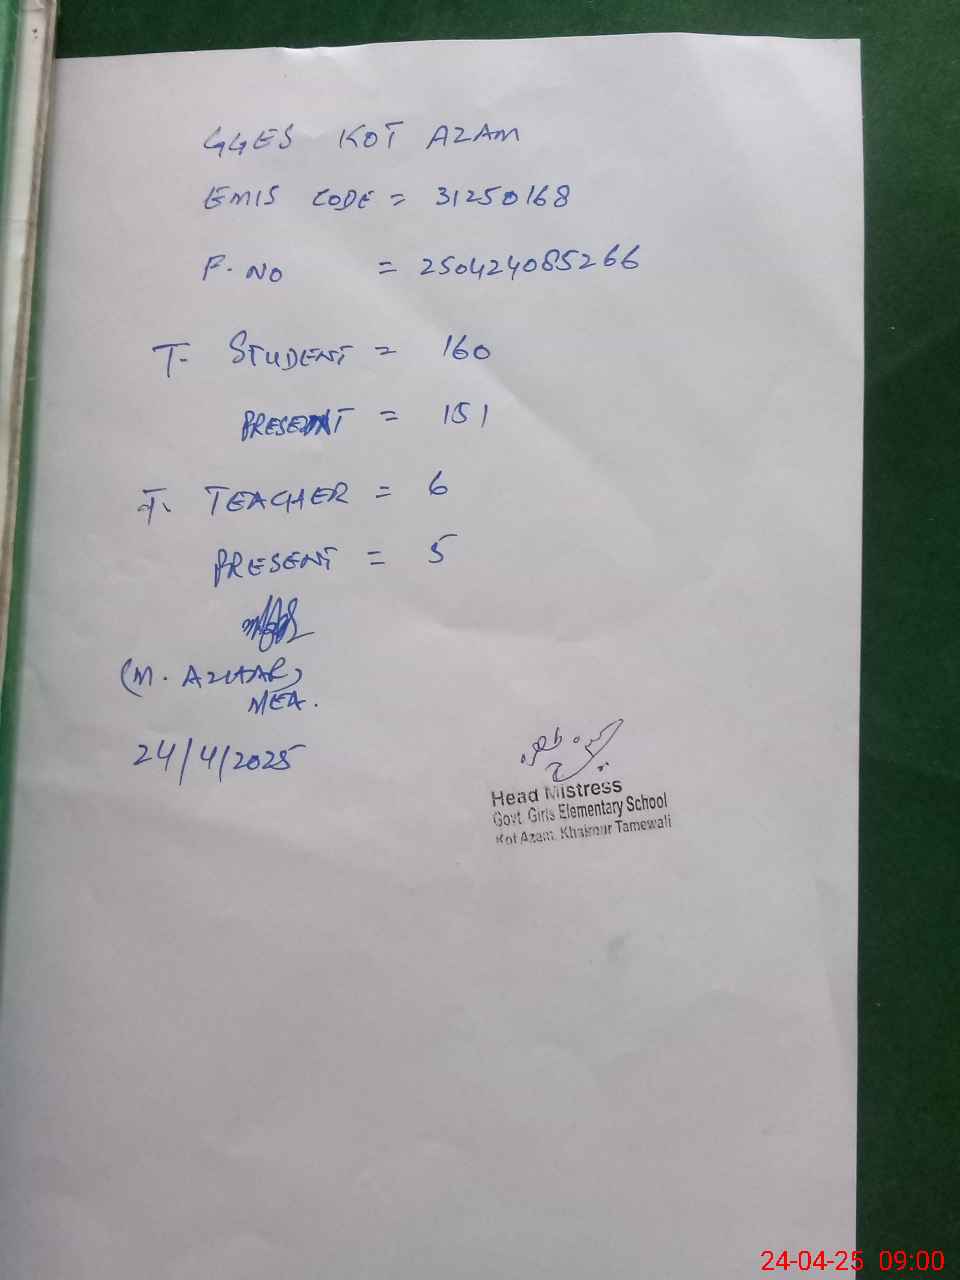 GGES KOT AZAM
EMIS CODE = 31250168
F. NO = 250424085266
T- STUDENT = 160
PRESENT = 151
T. TEACHER = 6
PRESENT = 5
(M. AZHAR)
MEA.
24/4/2025
Head Mistress
Govt. Girls Elementary School
Kot Azam, Khairpur Tamewali
24-04-25 09:00